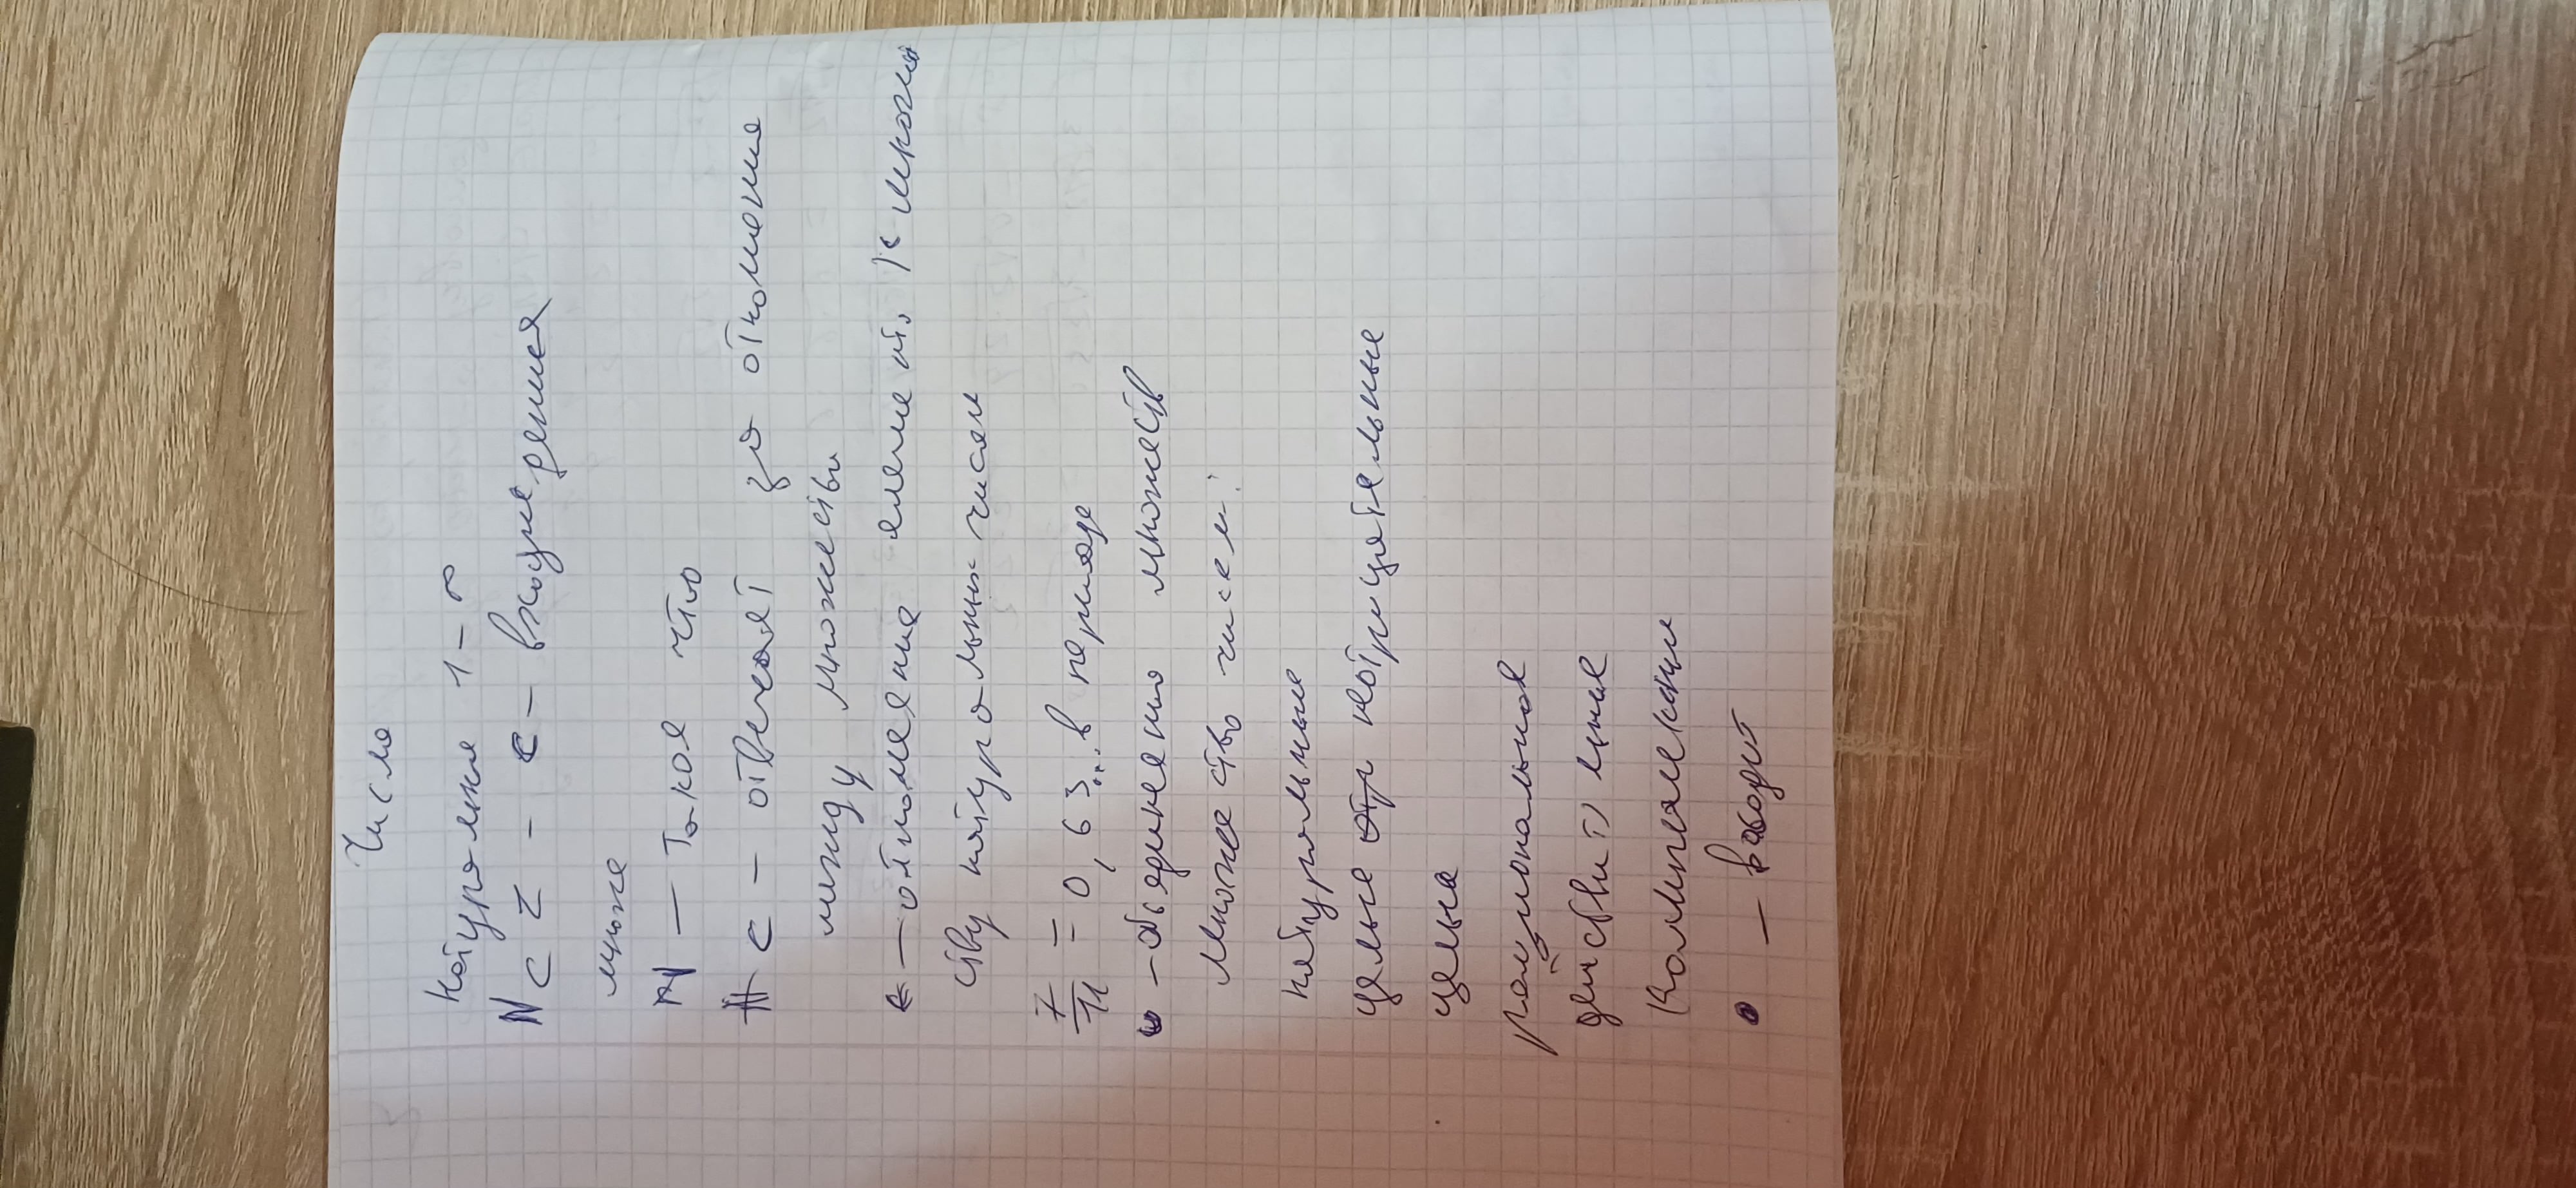 Числа
Натуральная 1 – ∞
N ⊂ Z – ⊂ –
множе
N – такое что
⊂ – отвечает за отношения
между множества
∈ – отношение элемента к множе
ству натуральных чисел
7/11 = 0,63... в периоде
∪ – объединения множеств
Множество чисел:
натуральные
целые неотрицательные
целые
рациональное
комплексные
– входит